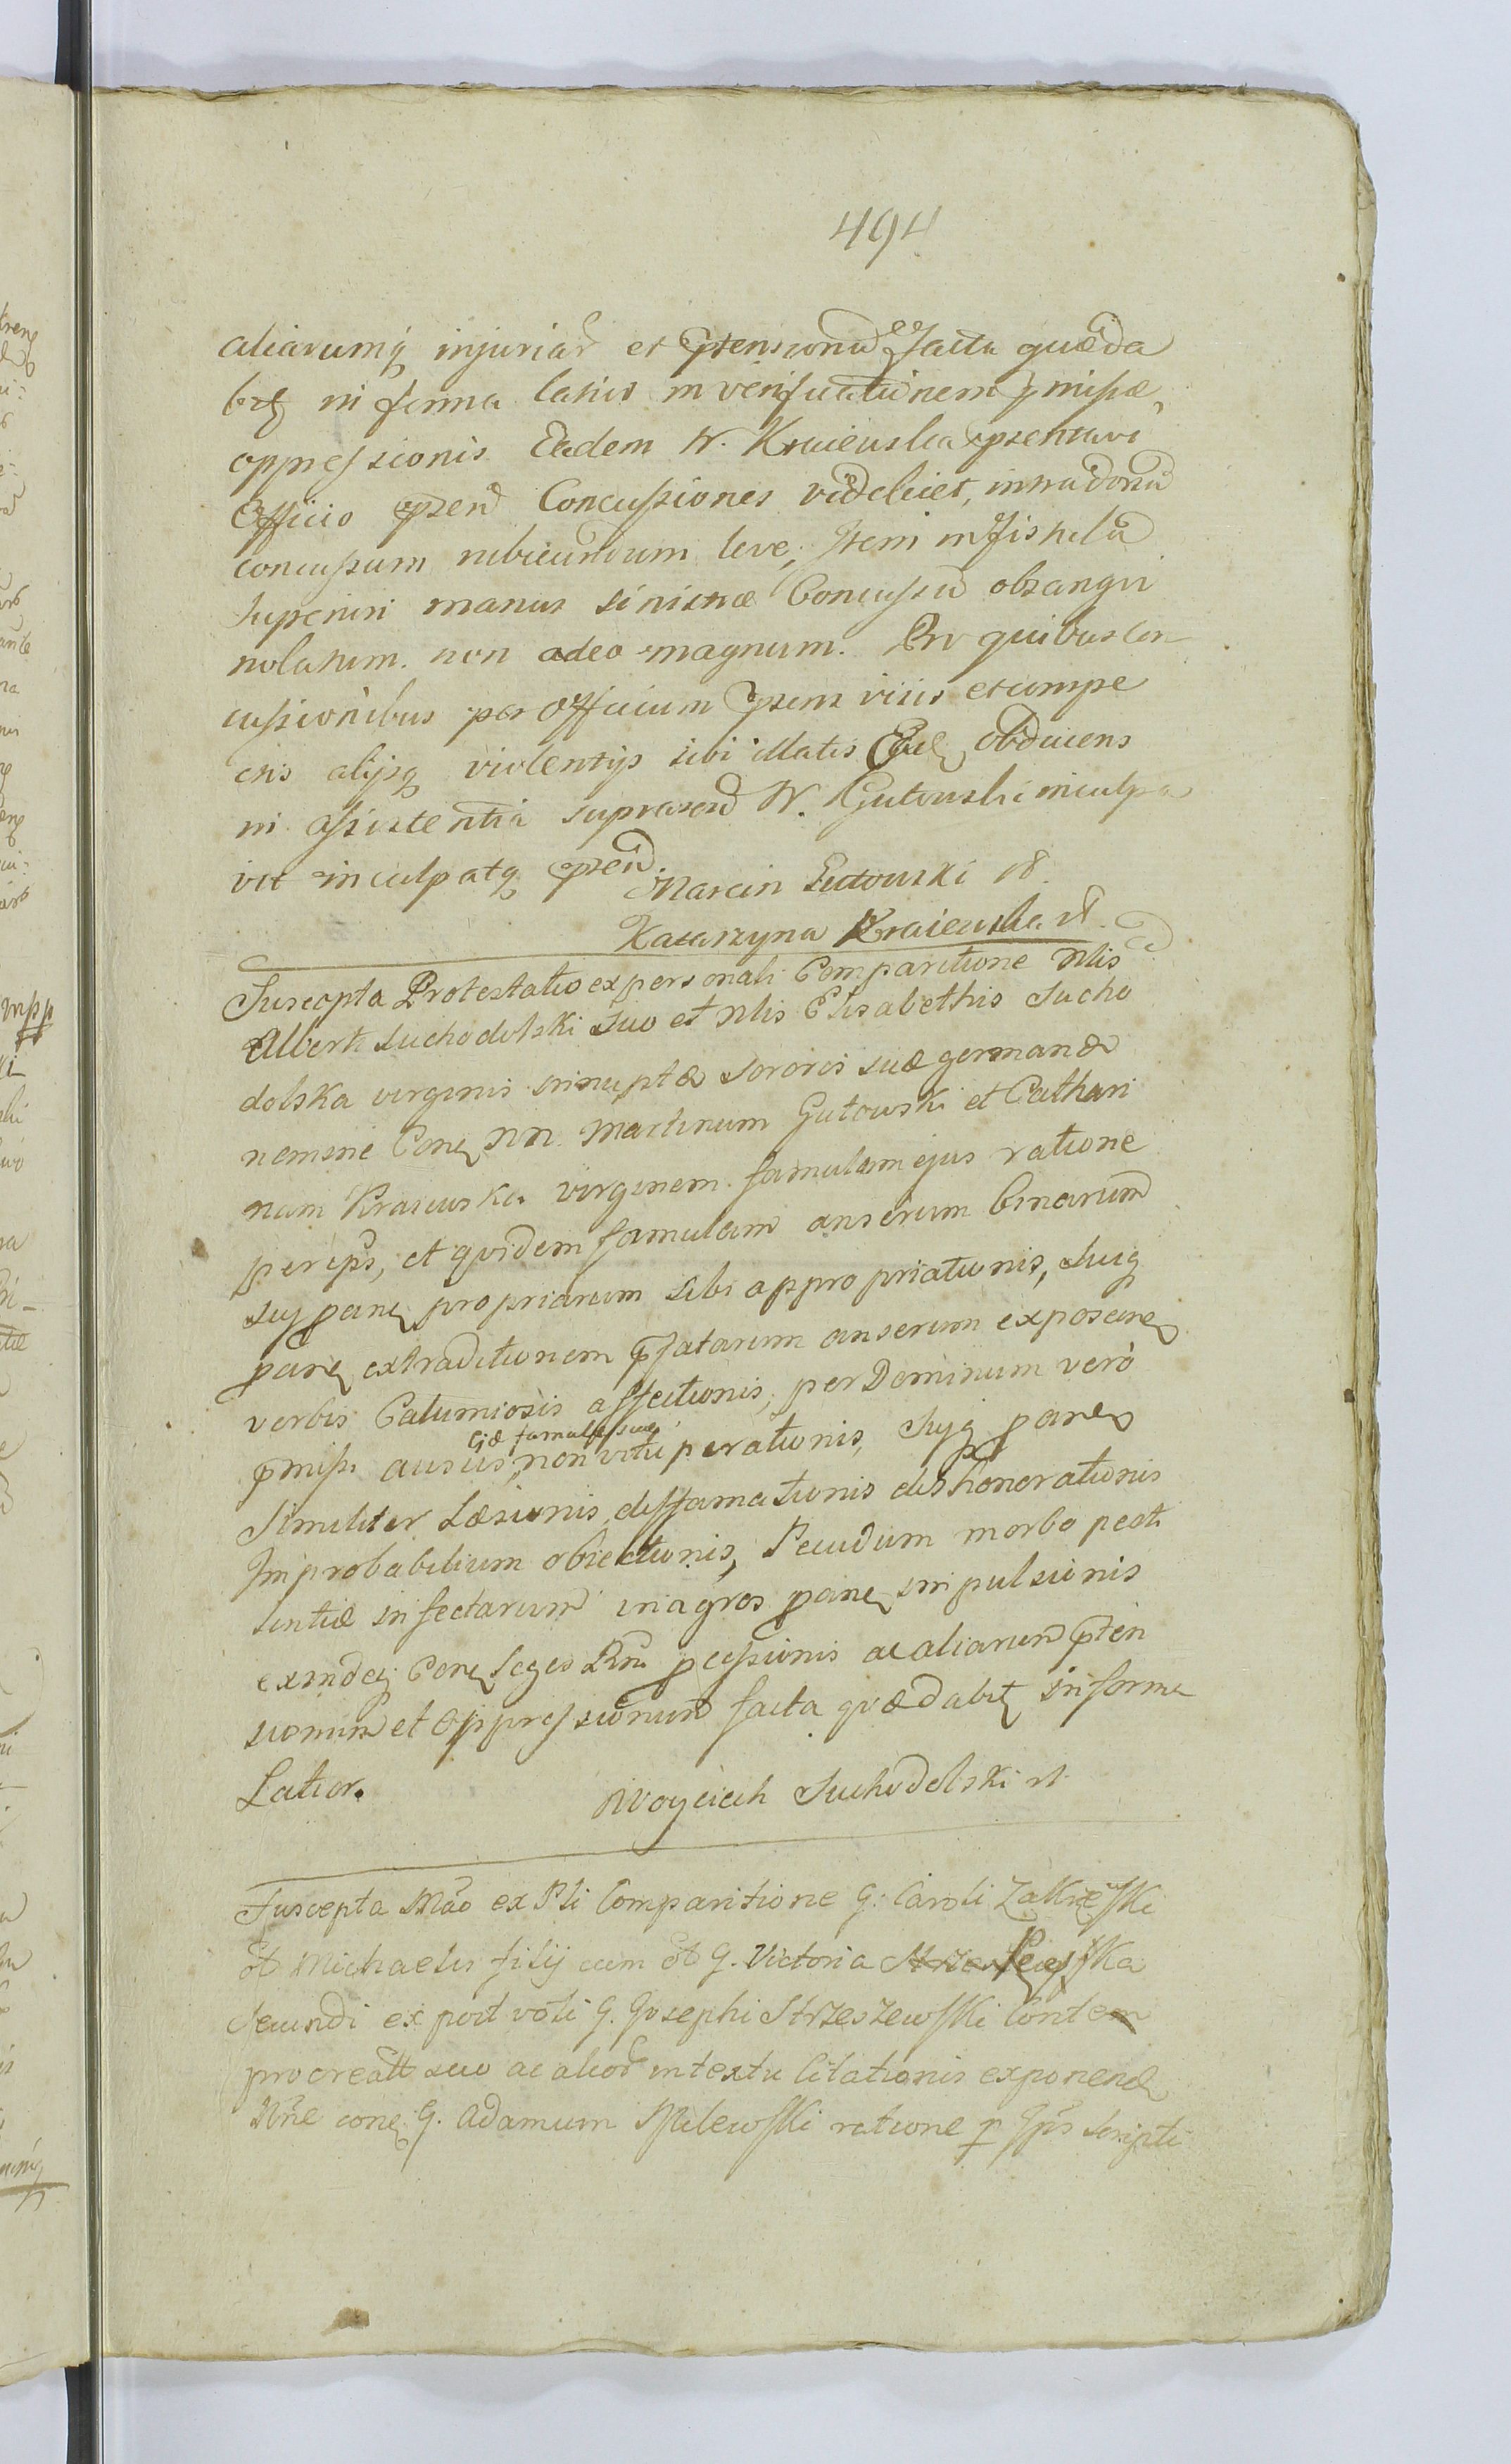 494
aliarumq injuriar et ptensionu facta quæda
bitq in forma latior in verificationem pmissæ
oppressionis Eadem N. Kraiewska psentavi
Officio psenti Concussiones videlicet, in
concussum rubicundum leve, Item in fistula
superiori manus sinistræ Concussu obsangvi
nolatum non adeo magnum. Pro quibus con
cussionibus per Officium psens visis et compe
rtis alijsq violentijs sibi illatis obducens
in assistentia suprascrd N. Gutowski inculpa
vit inculpatq psend.
Marcin Gutowski
Katarzyna Kraiewska
Suscepta Protestatio ex personali Comparitione Nlis
Alberti Suchodolski Suo et Nlis Elisabethis Sucho
dolska virginis innuptæ Sororis suæ germanæ
nomine Conq NN. Martinum Gutowski et Cathari
nam Kraiewska virginem famulam ejus ratione
per ips, et qvidem famulam anserum binarum
suj panq propriarum sibi appropriationis, Suiq
panq extraditionem pfatarum anserum exposcenq
verbis Calumniosis affectionis, per Dominum vero
ejæ famulæ suæ
pmiss ausus non vituperationis, Sujq panq
Similiter Læsionis, diffamationis dishonorationis
Improbabilium obiectionis, Pecudum morbo pesti
lentiæ infectarum in agros panq impulsionis
exindeq Conq Leges Rni pcessionis ac aliarum pten
sionum et Oppressionum facta qvædabitq in forma
Latior.
Woyciech Suchodolski
Suscepta Mão ex Pli Comparitione G: Caroli Zakrzewski
ol Michaelis filij cum ol G. Victoria
Secundi ex post voti G. Josephi Strzeszewski Contem
procreatt suo ac alior in textu Citationis exponend
Nne conq G. Adamum Milewski ratione p Ips scripti